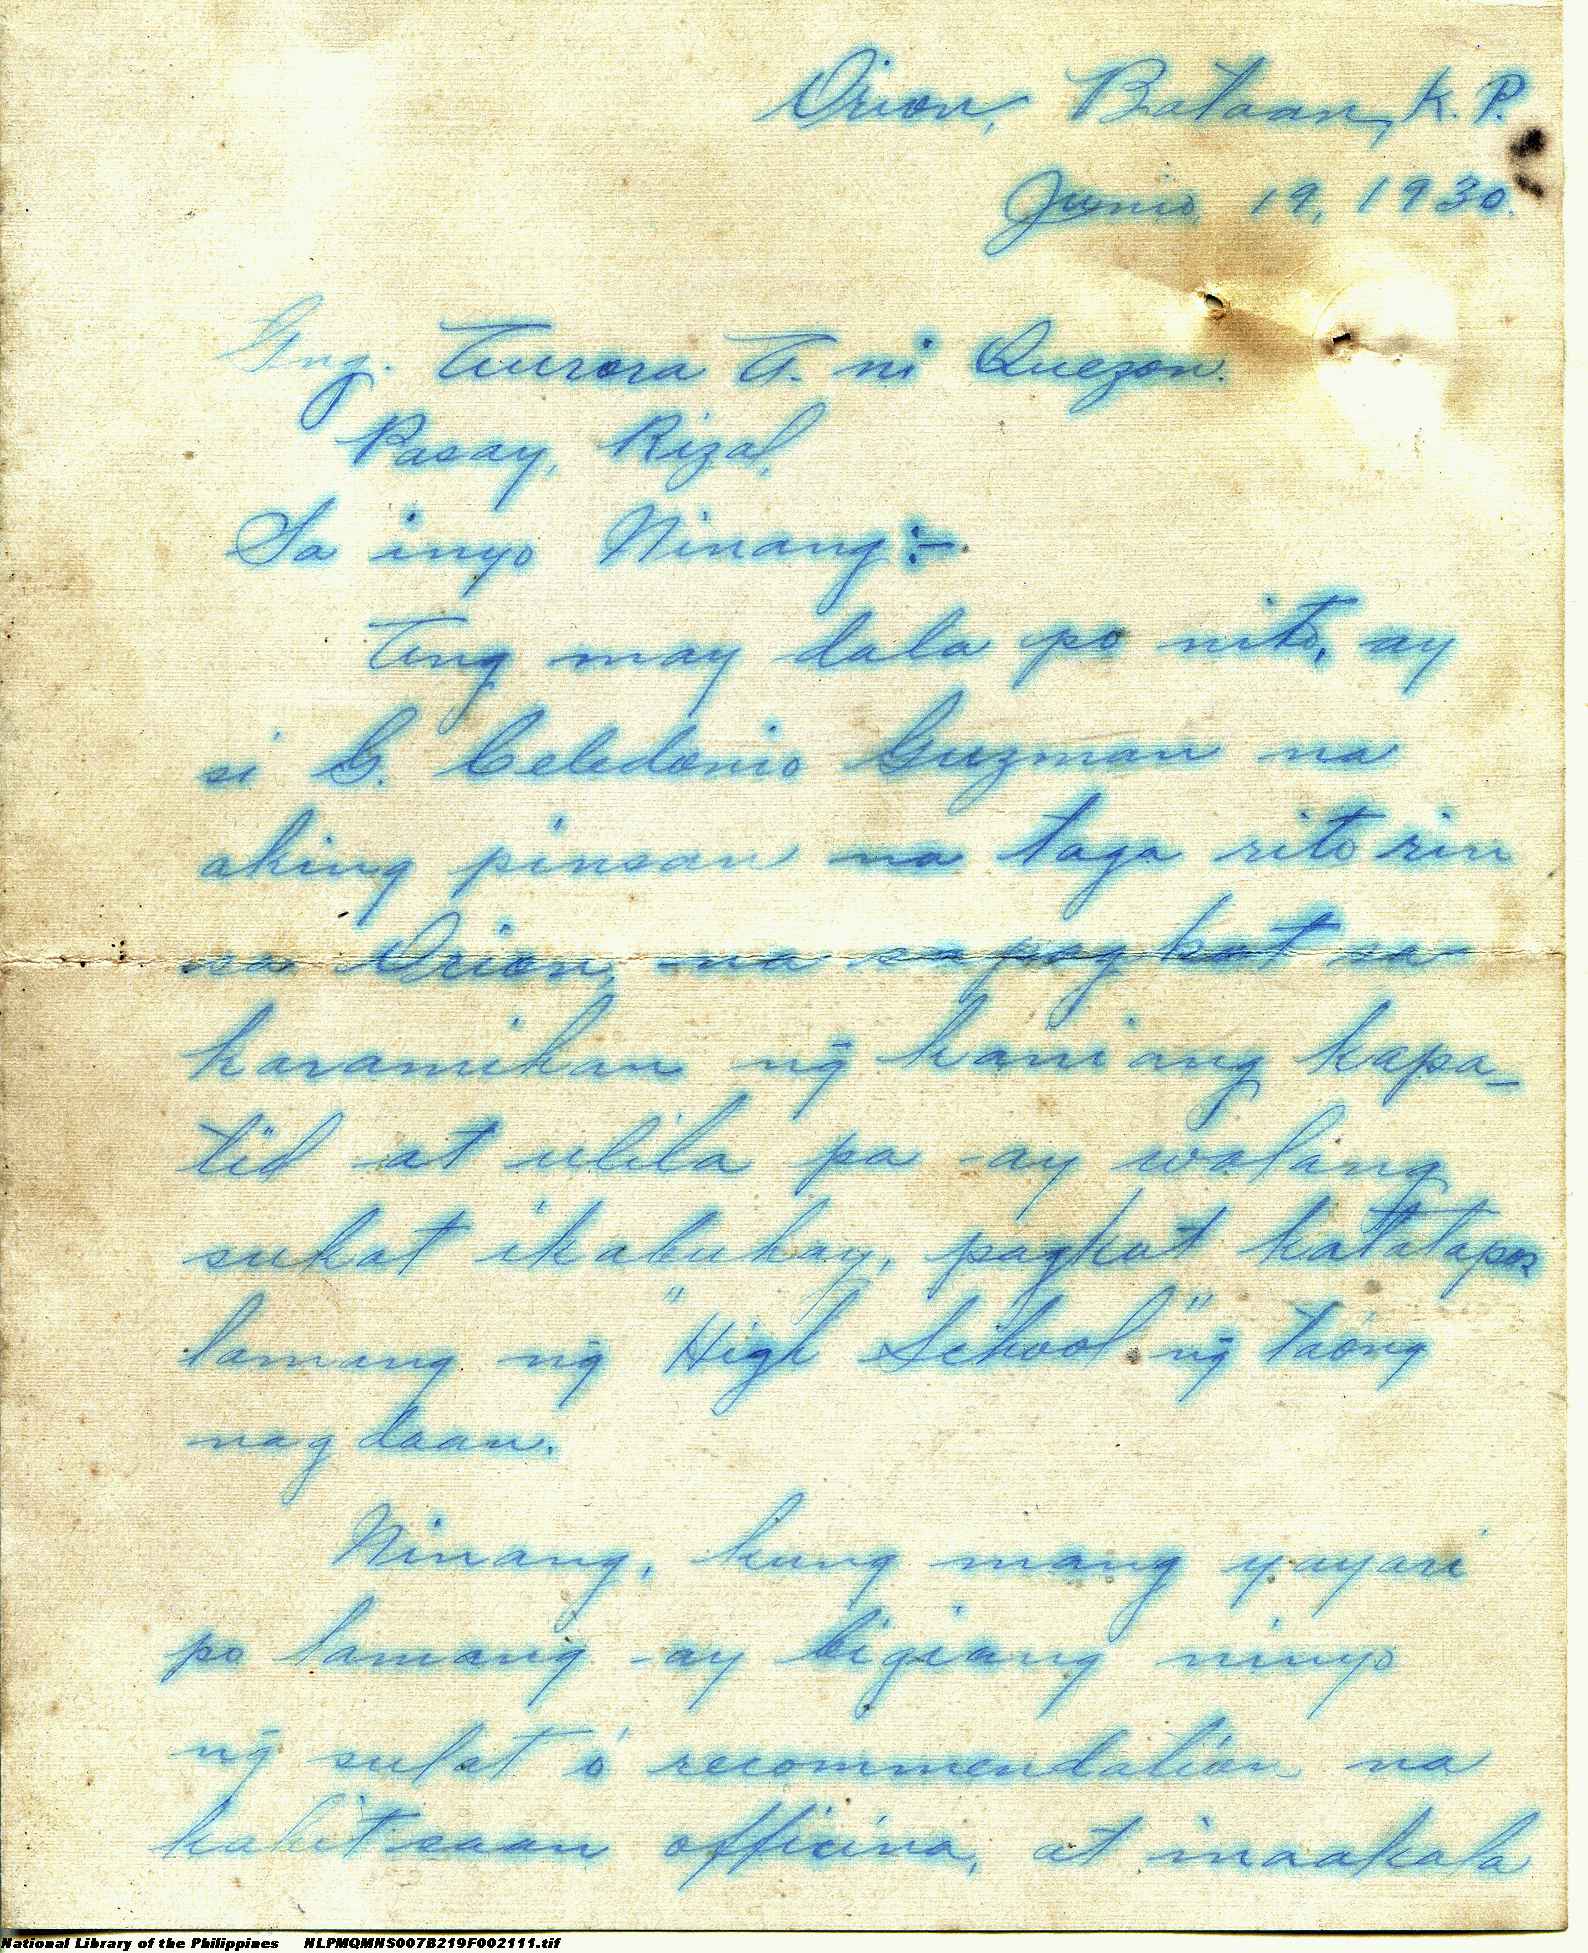 Orion, Bataan, K. P.
Junio 19, 1930.
Gng. Aurora A. ni Quezon.
Pasay, Rizal,
Sa inyo Ninang:-
Ang may dala po nito, ay
si G. Celedonio Guzman na
aking pinsan na taga rito rin
sa Orion, na sapagkat sa
karamihan ng̃ kaniang kapa-
tid at ulila pa ay walang
sukat ikabuhay, pagkat katatapos
lamang ng̃ "High School" ng̃ taóng
nagdaan.
Ninang, kung mang yayari
po lamang ay bigiang ninyo
ng̃ sulat ó recommendation na
kahit saan officina, at inaakala
National Library of the Philippines NLPMQMNS007B219F002111.tif